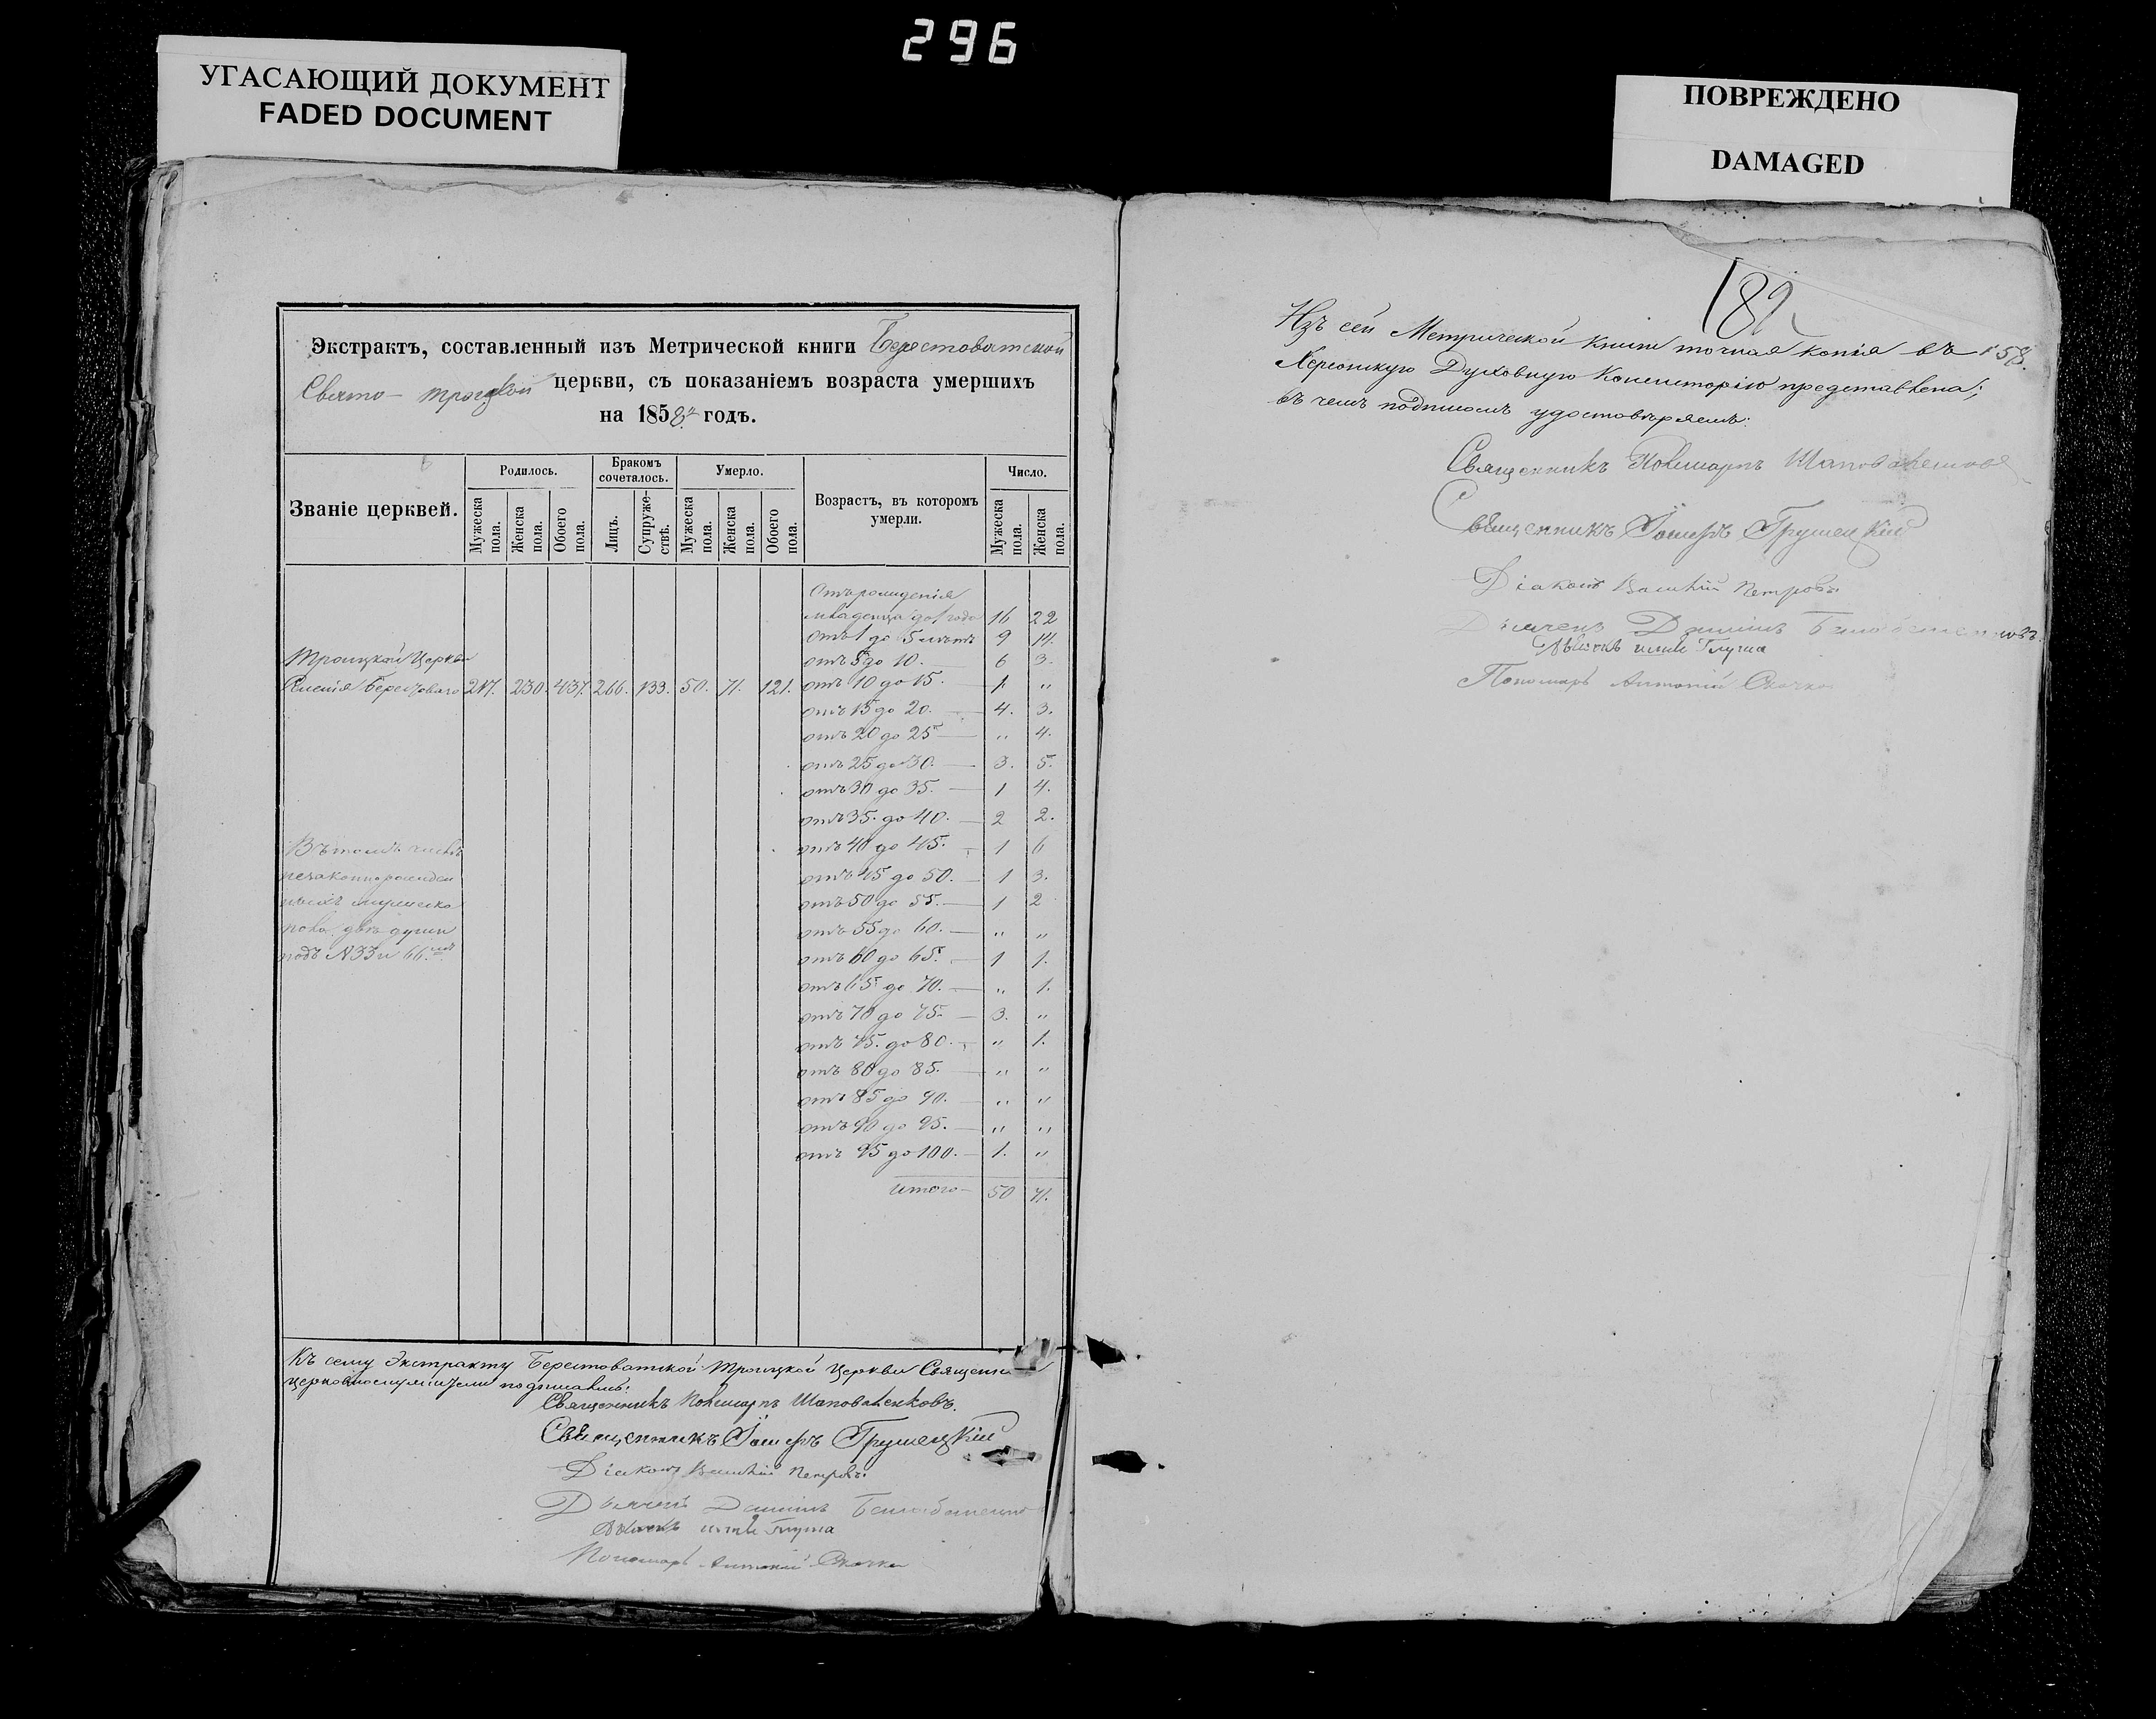 296
УГАСАЮЩИЙ ДОКУМЕНТ
FADED DOCUMENT
ПОВРЕЖДЕНО
DAMAGED
Экстрактъ, составленный изъ Метрической книги Берестоватской
Свято-Троицкой церкви, съ показаніемъ возраста умершихъ
на 1858й годъ.
Званіе церквей. Родилось. Бракомъ сочеталось. Умерло. Возрастъ, въ которомъ умерли. Число.
Мужеска пола. Женска пола. Обоего пола. Лицъ. Супружествъ. Мужеска пола. Женска пола. Обоего пола. Мужеска пола. Женска пола.
Отъ рожденія
младенца до 1 года 16 22
отъ 1 до 5 лѣтъ 9 14.
Троицкой Церкви отъ 5 до 10. 6 3.
Берестоваго 217. 230. 437. 266. 133. 50. 71. 121. отъ 10 до 15. 1. „
отъ 15 до 20. 4. 3.
отъ 20 до 25 „ 4.
отъ 25 до 30. 3. 5.
отъ 30 до 35. 1 4.
отъ 35. до 40. 2 2.
Въ томъ числѣ отъ 40 до 45. 1 6
незаконнорожден отъ 45 до 50. 1 3.
ныхъ мужеска отъ 50 до 55. 1 2
пола двѣ души отъ 55 до 60. „ „
подъ N 33 и 66.мъ отъ 60 до 65. 1 1.
отъ 65 до 70. „ 1.
отъ 70 до 75. 3. „
отъ 75. до 80. „ 1.
отъ 80 до 85. „ „
отъ 85 до 90. „ „
отъ 90 до 95. „ „
отъ 95 до 100. 1. „
итого 50 71.
Къ сему Экстракту Берестоватской Троицкой Церкви Священно
церковнослужители подписались:
Священникъ Поликарпъ Шаповаленковъ.
Священникъ Іосифъ Грушецкій
Діаконъ Василій Петровъ.
Дьячекъ Даніилъ
Дьячекъ
Пономарь Антоній Скачко
182
Изъ сей Метрической книги точная копія въ 158.
Херсонскую Духовную Консисторію представлена;
въ чемъ подписомъ удостовѣряемъ:
Священникъ Поликарпъ Шаповаленковъ
Священникъ Іосифъ Грушецкій
Діаконъ Василій Петровъ
Дьячекъ Даніилъ
Дьячекъ
Пономарь Антоній Скачко